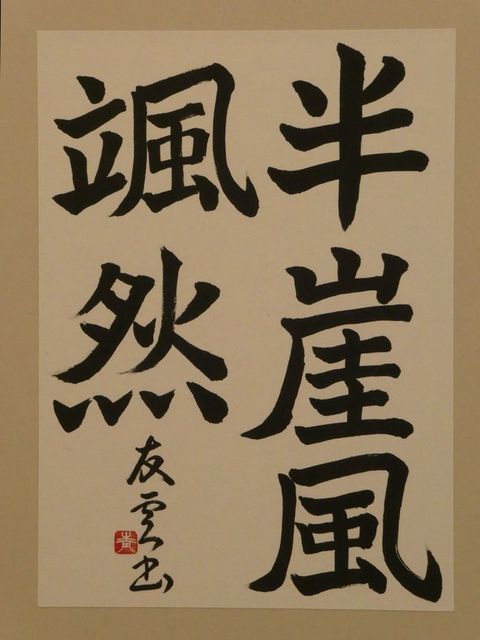 半崖風
颯然
友雲書